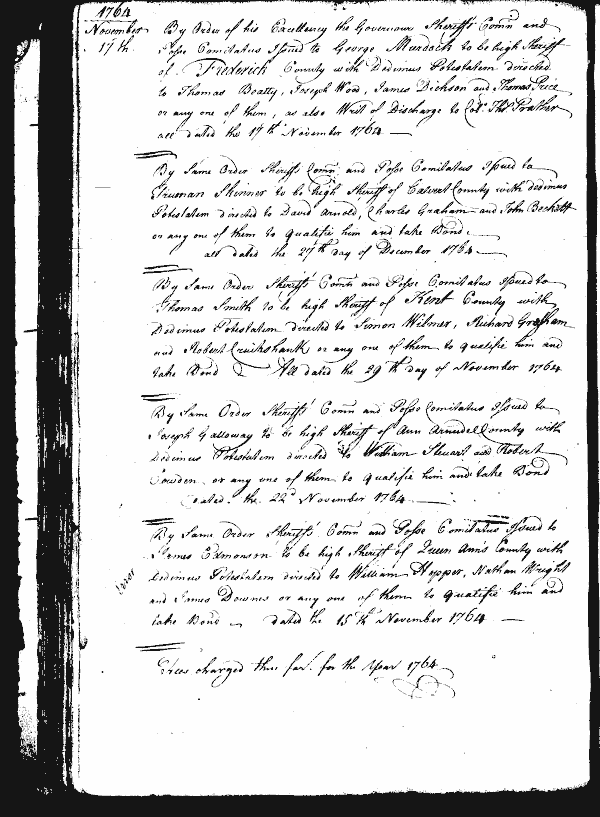 1764
November
17th
By Order of his Excellency the Governour Sheriffs Comn and
Posse Comitatus Issued to George Murdoch to be high Sheriff
of Frederick County with Dedimus Potestatem directed
to Thomas Beatty, Joseph Wood, James Dickson and Thomas Price
or any one of them, as also Writ of Discharge to Col. Thos Prather
all dated the 17th November 1764
By Same Order Sheriffs Comn and Posse Comitatus Issued to
Truman Skinner to be high Sheriff of Calvert County with dedimus
Potestatem directed to David Arnold, Charles Graham and John Beckett
or any one of them to qualifie him and take Bond.
all dated the 27th day of December 1764
By Same Order Sheriffs Comn and Posse Comitatus Issued to
Thomas Smith to be high Sheriff of Kent County with
Dedimus Potestatem directed to Simon Wilmer, Richard Graham
and Robert Cruikshank or any one of them to qualifie him and
take Bond All dated the 29th day of November 1764
By Same Order Sheriffs Comn and Posse Comitatus Issued to
Joseph Galloway to be high Sheriff of Ann Arundel County with
Dedimus Potestatem directed to William Steuart and Robert
Cowden or any one of them to qualifie him and take Bond
dated the 22d November 1764
By Same Order Sheriffs Comn and Posse Comitatus Issued to
James Edmonson to be high Sheriff of Queen Anns County with
Dedimus Potestatem directed to William Hopper, Nathan Wright
and James Downes or any one of them to qualifie him and
take Bond dated the 15th November 1764
Error
Fees charged thus far for the Year 1764